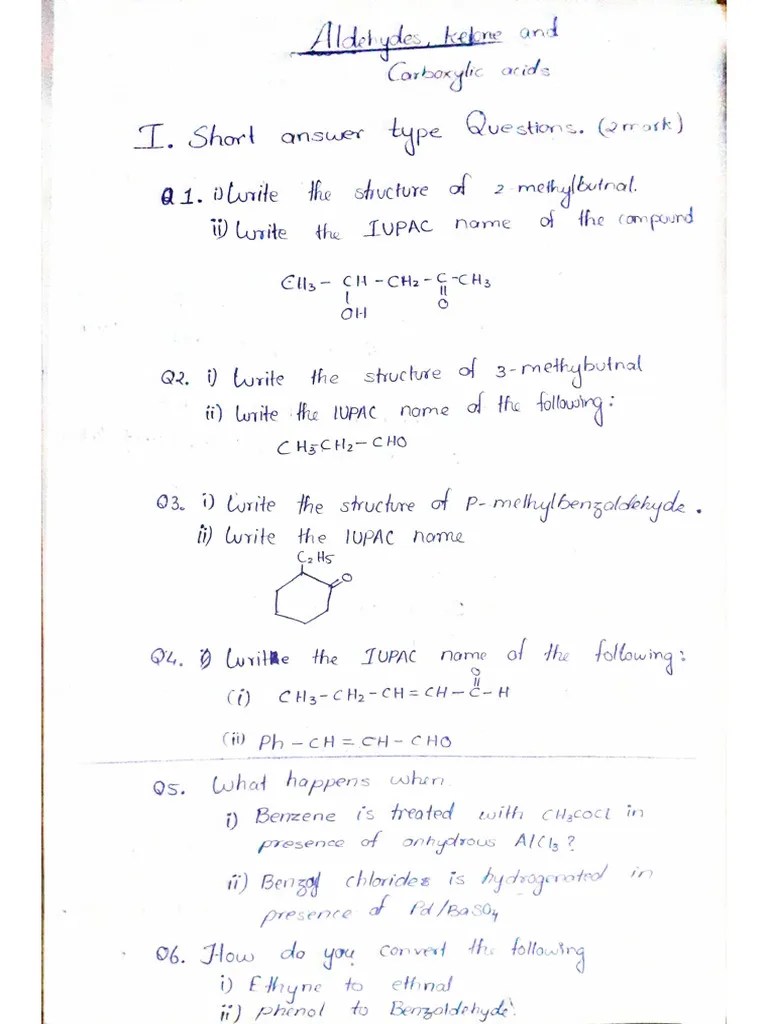 Aldehydes, ketone and
Carboxylic acids
I. Short answer type Questions. (2 mark)
Q1. i) Write the structure of 2-methylbutnal.
ii) Write the IUPAC name of the compound
CH3 - CH - CH2 - C - CH3
OH O
Q2. i) Write the structure of 3-methybutnal
ii) Write the IUPAC name of the following:
CH3CH2 - CHO
Q3. i) Write the structure of P-methylbenzaldehyde.
ii) Write the IUPAC name
C2H5
O
Q4. i) Write the IUPAC name of the following:
O
(i) CH3-CH2-CH=CH-C-H
(ii) Ph-CH=CH-CHO
Q5. What happens when
i) Benzene is treated with CH3COCl in
presence of anhydrous AlCl3?
ii) Benzoyl chlorides is hydrogenated in
presence of Pd/BaSO4
Q6. How do you convert the following
i) Ethyne to ethnal
ii) phenol to Benzaldehyde.